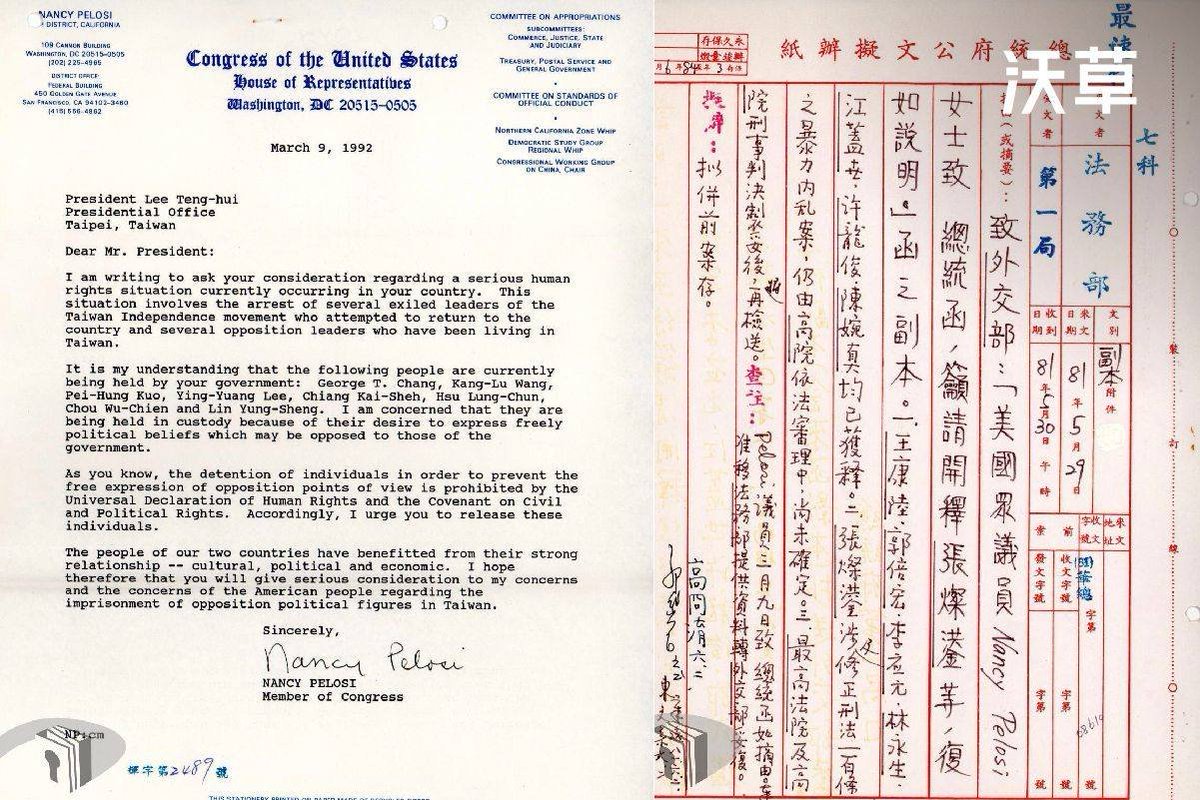 NANCY PELOSI
DISTRICT, CALIFORNIA
109 CANNON BUILDING
WASHINGTON, DC 20515-0505
(202) 225-4965
DISTRICT OFFICE:
FEDERAL BUILDING
450 GOLDEN GATE AVENUE
SAN FRANCISCO, CA 94102-3460
(415) 556-4862
Congress of the United States
House of Representatives
Washington, DC 20515-0505
COMMITTEE ON APPROPRIATIONS
SUBCOMMITTEES:
COMMERCE, JUSTICE, STATE
AND JUDICIARY
TREASURY, POSTAL SERVICE AND
GENERAL GOVERNMENT
COMMITTEE ON STANDARDS OF
OFFICIAL CONDUCT
NORTHERN CALIFORNIA ZONE WHIP
DEMOCRATIC STUDY GROUP
REGIONAL WHIP
CONGRESSIONAL WORKING GROUP
ON CHINA, CHAIR
March 9, 1992
President Lee Teng-hui
Presidential Office
Taipei, Taiwan
Dear Mr. President:
I am writing to ask your consideration regarding a serious human
rights situation currently occurring in your country. This
situation involves the arrest of several exiled leaders of the
Taiwan Independence movement who attempted to return to the
country and several opposition leaders who have been living in
Taiwan.
It is my understanding that the following people are currently
being held by your government: George T. Chang, Kang-Lu Wang,
Pei-Hung Kuo, Ying-Yuang Lee, Chiang Kai-Sheh, Hsu Lung-Chun,
Chou Wu-Chien and Lin Yung-Sheng. I am concerned that they are
being held in custody because of their desire to express freely
political beliefs which may be opposed to those of the
government.
As you know, the detention of individuals in order to prevent the
free expression of opposition points of view is prohibited by the
Universal Declaration of Human Rights and the Covenant on Civil
and Political Rights. Accordingly, I urge you to release these
individuals.
The people of our two countries have benefitted from their strong
relationship -- cultural, political and economic. I hope
therefore that you will give serious consideration to my concerns
and the concerns of the American people regarding the
imprisonment of opposition political figures in Taiwan.
Sincerely,
Nancy Pelosi
NANCY PELOSI
Member of Congress
NP:cm
2489 號
沃草
紙辦擬文公府統總
最速
七科
法務部
第一局
副本
81年5月29日
81年5月30日午時
致外交部:「美國眾議員 Nancy Pelosi
女士致 總統函,籲請開釋張燦鍙等,復
如說明。」函之副本。一、王康陸、郭倍宏、李應元、林永生、
江蓋世、許龍俊、陳婉真均已獲釋。二、張燦鍙涉修正刑法一百條
之暴力內亂案,仍由高院依法審理中,尚未確定。三、最高法院及高
院刑事判決製妥後,再檢送。查註:
Pelosi議員三月九日致 總統函如摘由,業
准移法務部提供資料轉外交部妥復。
擬辦:拟併前案存。